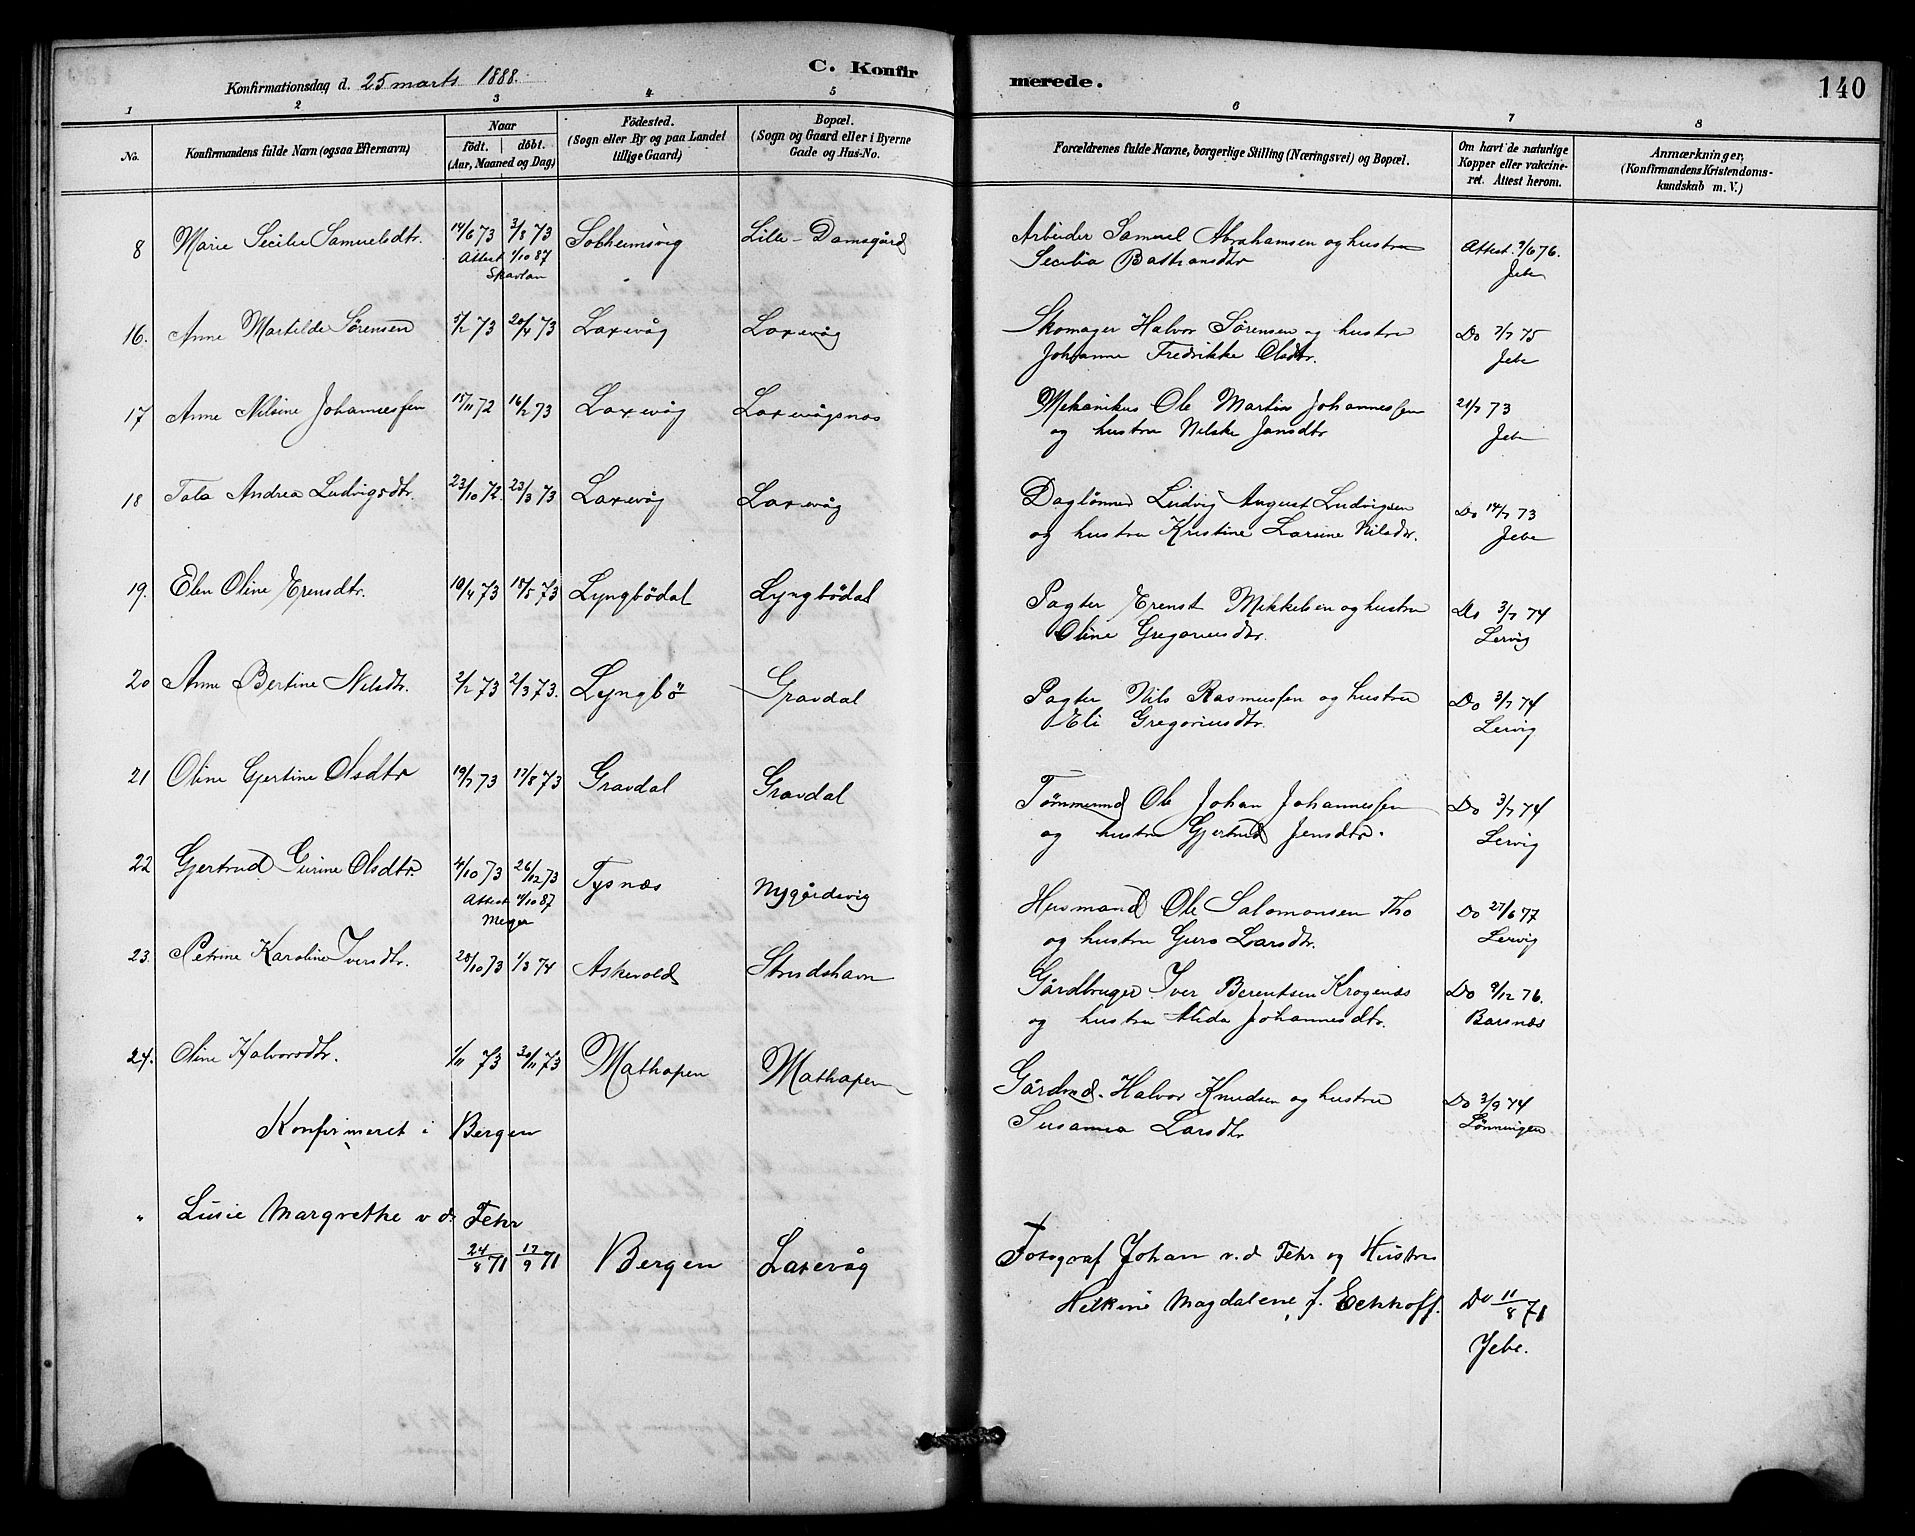 C. Konfirmerede.
140
Konfirmationsdag d. 25 marts 1888.
1 2 3 4 5 6 7 8
No.
Konfirmandens fulde Navn (ogsaa Efternavn)
Naar
födt. döbt.
(Aar, Maaned og Dag)
Födested.
(Sogn eller By og paa Landet
tillige Gaard)
Bopæl.
(Sogn og Gaard eller i Byerne
Gade og Hus-No.
Forældrenes fulde Navne, borgerlige Stilling (Næringsvei) og Bopæl.
Om havt de naturlige
Kopper eller vakcine-
ret. Attest herom.
Anmærkninger,
(Konfirmandens Kristendoms-
kundskab m. V.)
8 Marie Secilie Samuelsdtr. 14/6 73 3/8 73 Solheimsvig Lille-Damsgård
Attest 1/10 87
Skavlan
Arbeider Samuel Abrahamsen og hustru
Secilia
Attest. 9/6 76.
Jebe
16. Anne Martilde Sørensen 5/2 73 20/4 73 Laxevåg Laxevåg
Skomager Halvor Sørensen og hustru
Johanne Fredrikke Olsdtr.
Do 7/7 75
Jebe
17 Anne Nilsine Johannessen 15/11 72 16/2 73 Laxevåg Laxevågsnæs
Mekanikus Ole Martin Johannessen
og hustru Nilske Jansdtr
21/7 73
Jebe
18 Tala Andrea Ludvigsdtr. 23/10 72 23/3 73 Laxevåg Laxevåg
Daglønner Ludvig August Ludvigsen
og hustru Kristine Larsine Nilsdtr.
Do 14/7 73
Jebe
19. Elen Oline Erensdtr. 10/4 73 18/5 73 Lyngbödal Lyngbödal
Pagter Erenst Mikkelsen og hustru
Oline Gregoriusdtr.
Do 3/7 74
Lervig
20 Anne Bertine Nilsdtr. 2/2 73 2/3 73. Lyngbö Gravdal
Pagter Nils Rasmussen og hustru
Eli Gregoriusdtr.
Do 3/7 74
Lervig
21 Oline Gjertine Olsdtr 19/7 73 17/8 73 Gravdal Gravdal
Tømmermd Ole Johan Johannessen
og hustru Gjertrud Jensdtr.
Do 3/7 74
Lervig
22 Gjertrud Gurine Olsdtr. 4/10 73 26/12 73 Tysnæs Nygårdsvig
Attest 4/10 87
Meyer
Husmand Ole Salomonsen Tho
og hustru Guro Larsdtr.
Do 27/6 77
Lervig
23. Petrine Karoline Iversdtr. 28/10 73 1/3 74 Askevold Strudshavn
Gårdbruger Iver Berentsen Krogenæs
og hustru Alida Johannesdtr.
Do 9/12 76.
Barsnæs
24. Oline Halvorsdtr. 1/11 73 30/11 73 Mathopen Mathopen
Gårdmd. Halvor Knudsen og hustru
Susanna Larsdtr
Do 3/9 74
Lönningen
Konfirmeret i Bergen
" Lusie Margrethe v d. Fehr
24/8 71 17/9 71 Bergen Laxevåg
Fotograf Johan v. d Fehr og Hustru
Magdalene, f. Eckhoff.
Do 11/8 71
Jebe.